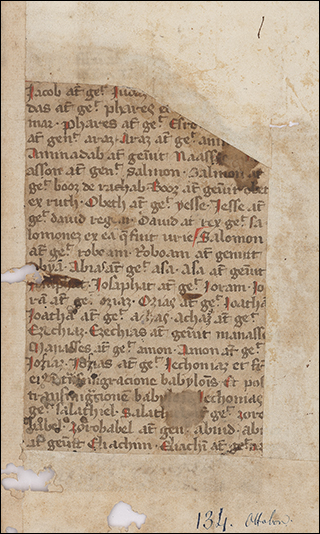 Jacob at͞ geᷣ Juda
das at͞ geᷣ phares et
mar · phares at͞ geᷣ Esro
at͞ gen̄ᷣ araz · Araz at͞ geᷣ ami
Aminadab at͞ geūit Naass
asson at͞ gen̄ᷣ salmon · Salmon at͞
geᷣ booz de rachab · Booz at͞ geūit obet
ex ruth · Obeth at͞ geᷣ yesse · Jesse at͞
geᷣ dauid regem · Dauid at͞ rex geᷣ sa
lomonez ex ea q̄ fuit urie / Salomon
at͞ geᷣ roboam · Roboam at͞ genuit
abyā · Abias at͞ geᷣ asa · Asa at͞ geūit
Josaphat at͞ geᷣ Joram · Jo
rā at͞ geᷣ oziaz · Ozias at͞ geᷣ Joathā
Joathā at͞ geᷣ achaz · achaz at͞ geᷣ
Ezechiaz · Ezechias at͞ geūit manasse
Manasses at͞ geᷣ amon · Amon at͞ geᷣ
Joziaz · Jozias at͞ geᷣ Jechoniaz et f
ei transmigracione babylōis · Et pos
t̄nsmigr̄cione Jechonias
geᷣ salathiel · Salath geᷣ zoro
babel · Zorobabel at͞ geū · abiud · abi
at͞ geūit Eliachim · Eliachī at͞ geᷣ az
134. Ottobon.